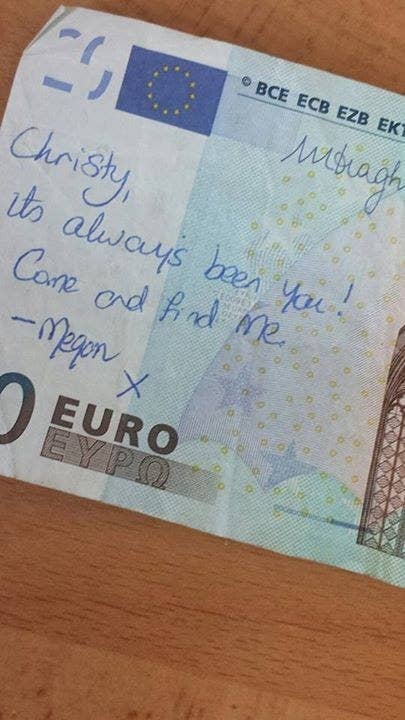 © BCE ECB EZB EKT
Christy,
its always been you!
Come and find me.
- Megan
X
0 EURO
ΕΥΡΩ